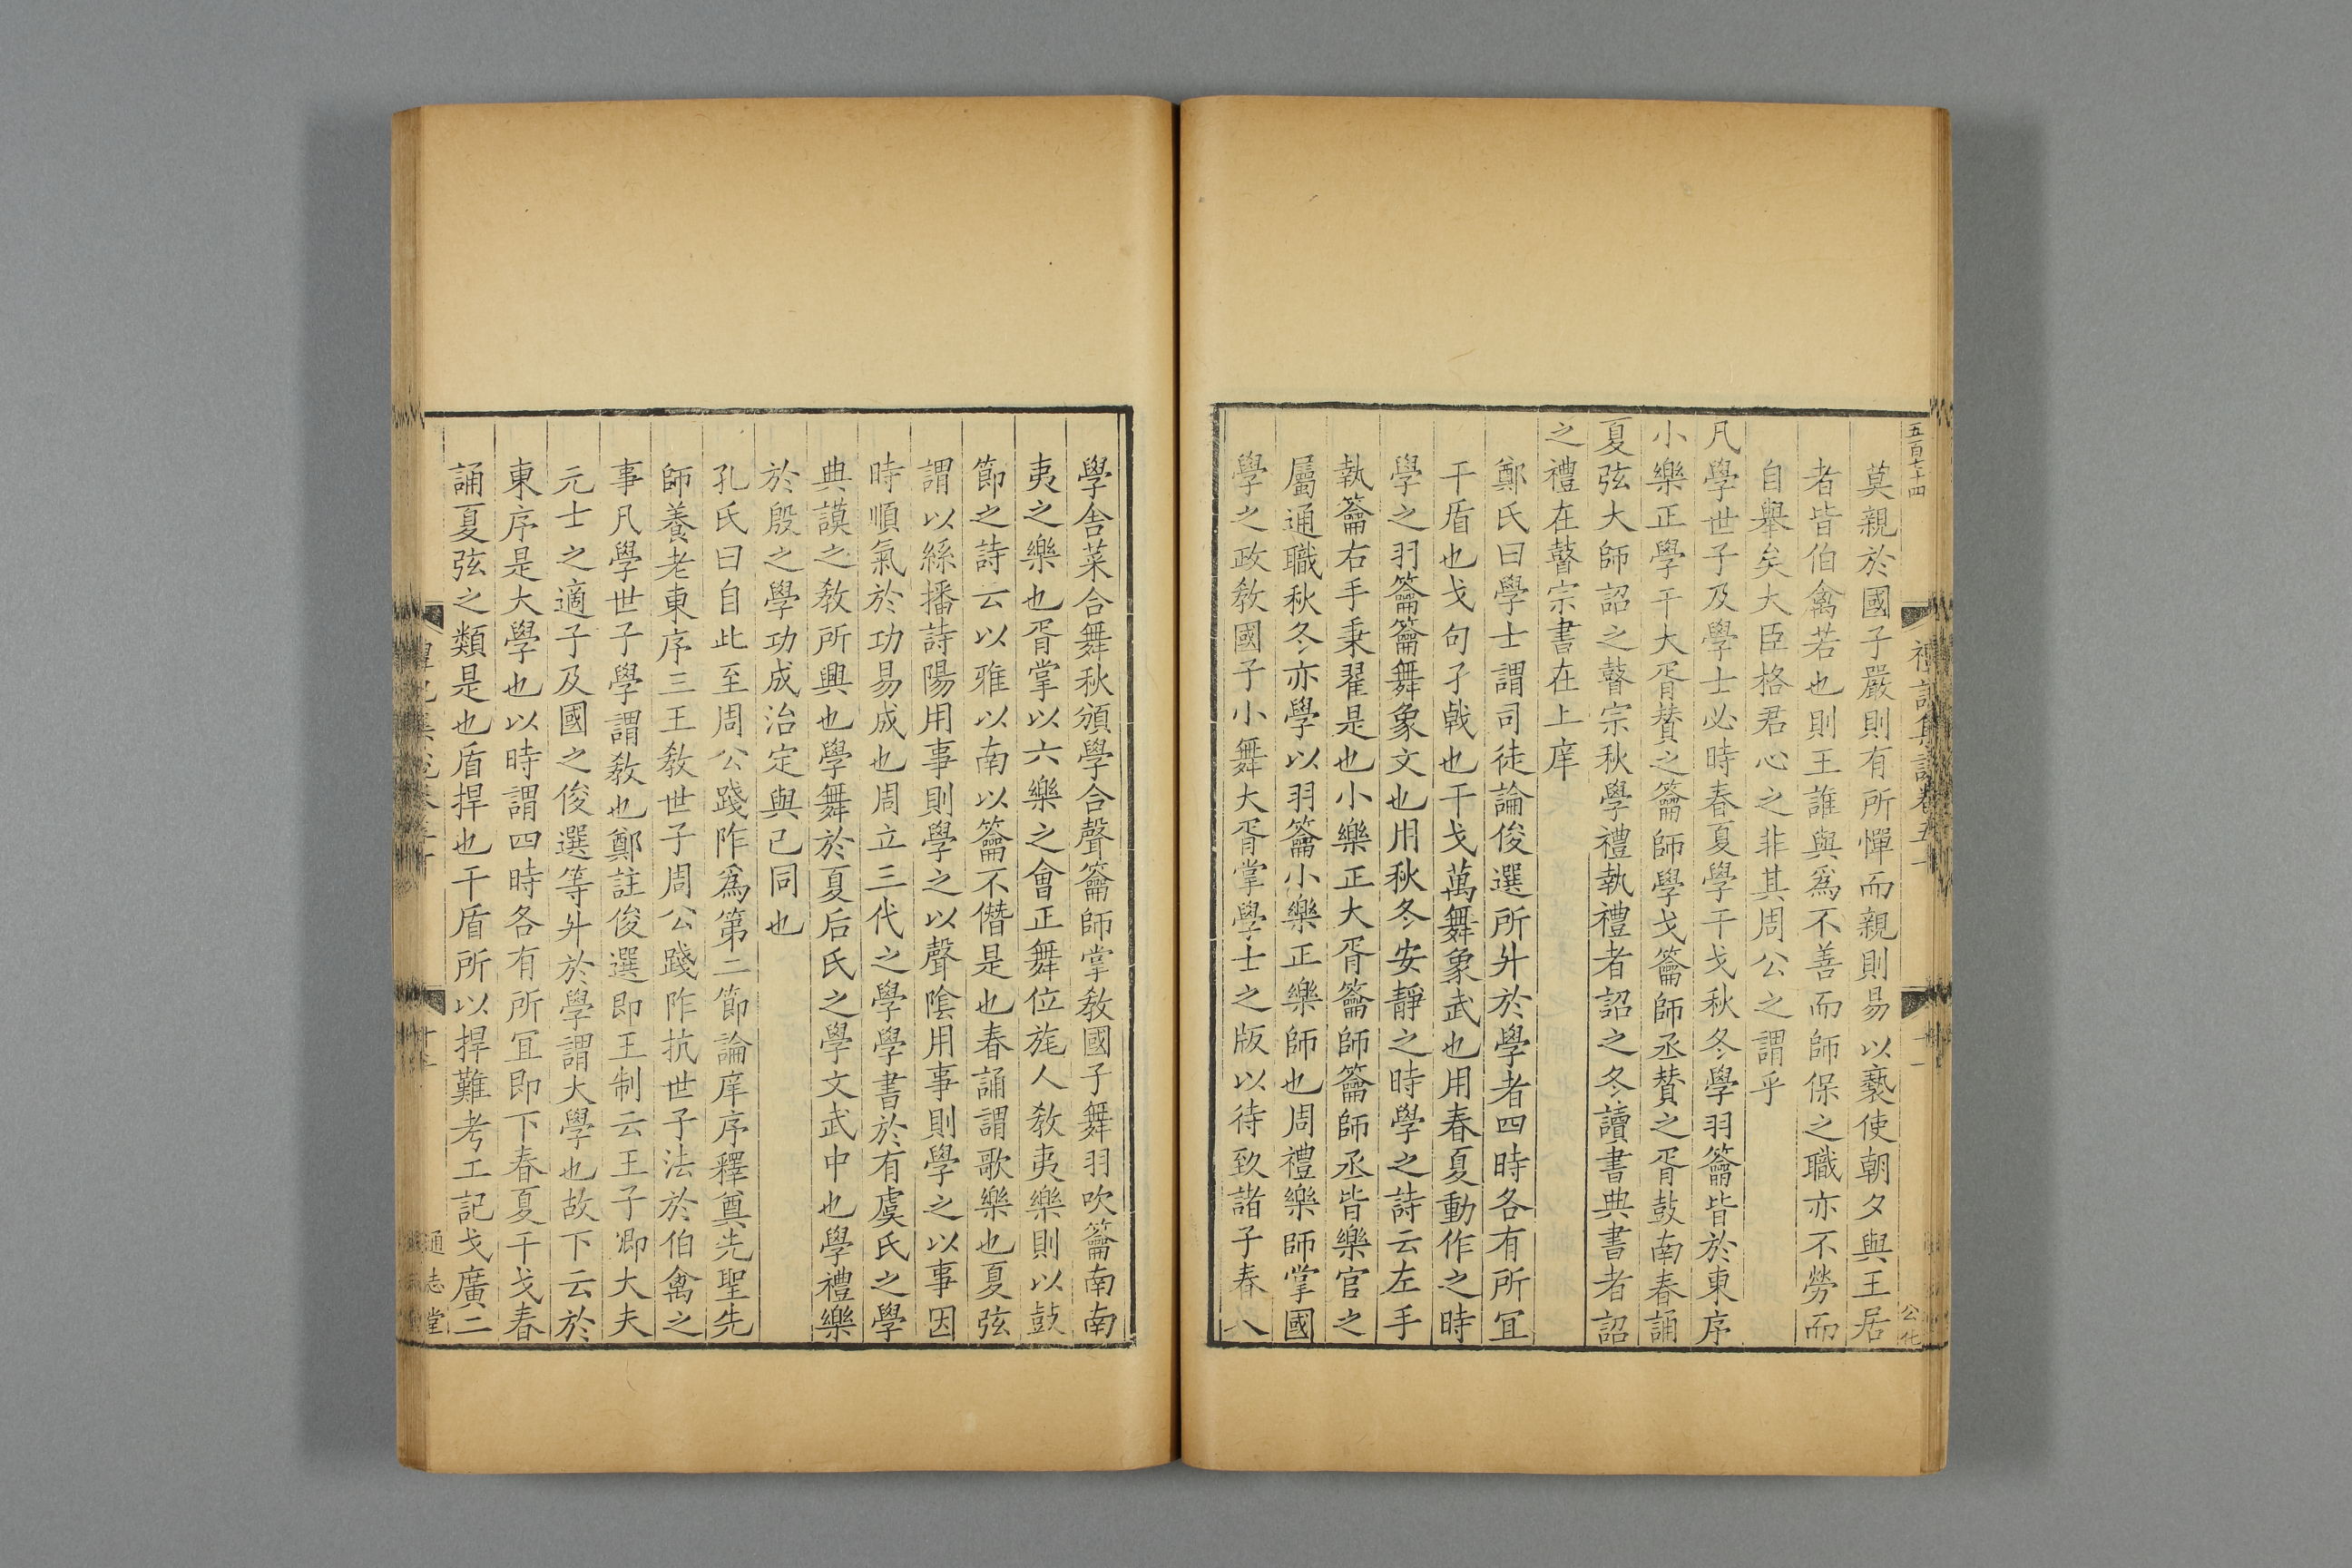 五百七十四
莫親於國子嚴則有所憚而親則易以褻使朝夕與王居
者皆伯禽若也則王誰與爲不善而師保之職亦不勞而
自舉矣大臣格君心之非其周公之謂乎
凡學世子及學士必時春夏學干戈秋冬學羽籥皆於東序
小樂正學干大胥賛之籥師學戈籥師丞賛之胥鼓南春誦
夏弦大師詔之瞽宗秋學禮執禮者詔之冬讀書典書者詔
之禮在瞽宗書在上庠
鄭氏曰學士謂司徒論俊選所升於學者四時各有所宜
干盾也戈句孑戟也干戈萬舞象武也用春夏動作之時
學之羽籥籥舞象文也用秋冬安靜之時學之詩云左手
執籥右手秉翟是也小樂正大胥籥師籥師丞皆樂官之
屬通職秋冬亦學以羽籥小樂正樂師也周禮樂師掌國
學之政敎國子小舞大胥掌學士之版以待致諸子春入
學舎菜合舞秋頒學合聲籥師掌敎國子舞羽吹籥南南
夷之樂也胥掌以六樂之會正舞位旄人敎夷樂則以鼓
節之詩云以雅以南以籥不僭是也春誦謂歌樂也夏弦
謂以絲播詩陽用事則學之以聲陰用事則學之以事因
時順氣於功易成也周立三代之學學書於有虞氏之學
典謨之敎所興也學舞於夏后氏之學文武中也學禮樂
於殷之學功成治定與己同也
孔氏曰自此至周公踐阼爲第二節論庠序釋奠先聖先
師養老東序三王敎世子周公踐阼抗世子法於伯禽之
事凡學世子學謂敎也鄭註俊選即王制云王子卿大夫
元士之適子及國之俊選等升於學謂大學也故下云於
東序是大學也以時謂四時各有所宜即下春夏干戈春
誦夏弦之類是也盾捍也干盾所以捍難考工記戈廣二
通志堂